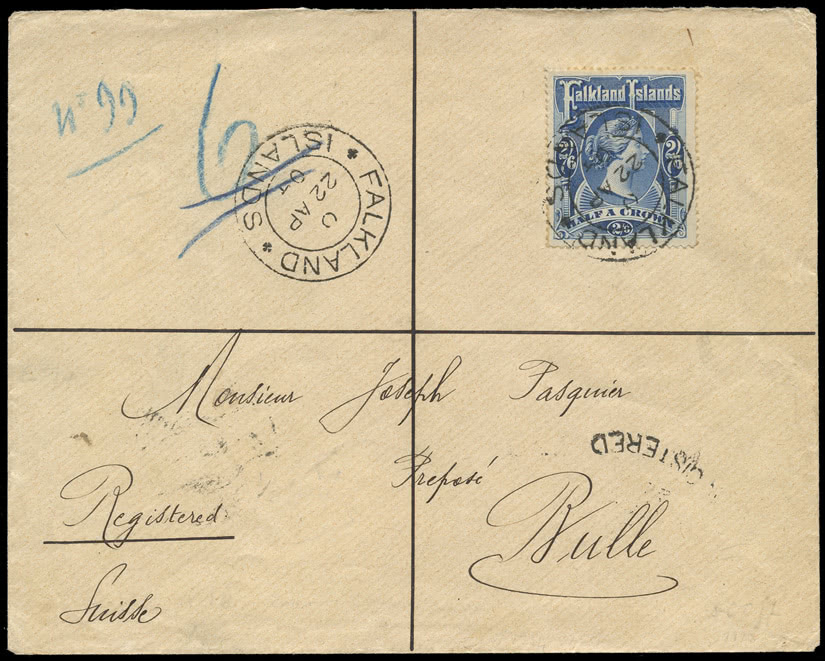 Falkland Islands
2/6 2/6
HALF A CROWN
2/6
FALKLAND ISLANDS
C
22 AP
01
FALKLAND ISLANDS
C
22 AP
Monsieur Joseph Pasquier
Preposé
REGISTERED
Registered
Bulle
Suisse